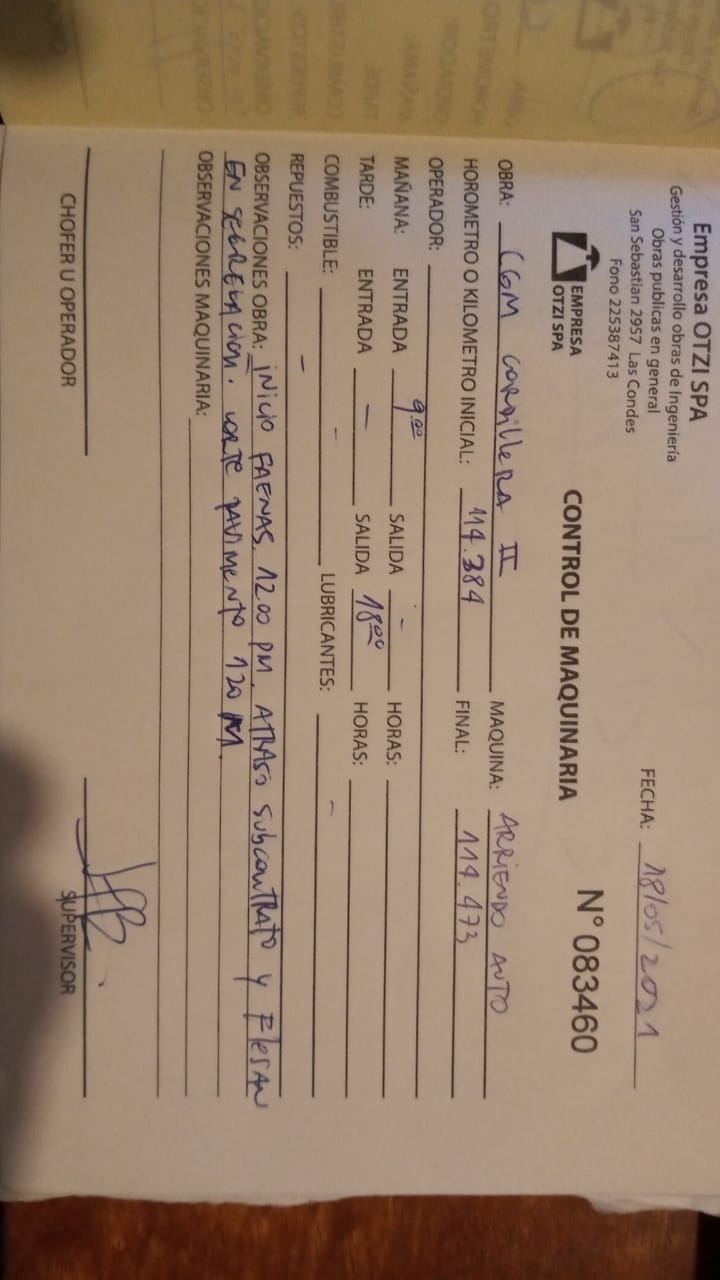 Empresa OTZI SPA
Gestión y desarrollo obras de Ingeniería
Obras publicas en general
San Sebastian 2957 Las Condes
Fono 225387413
EMPRESA
OTZI SPA
FECHA: 18/05/2021
N° 083460
CONTROL DE MAQUINARIA
OBRA: CGM CORDILLERA II MAQUINA: ARRIENDO AUTO
HOROMETRO O KILOMETRO INICIAL: 114.384 FINAL: 114.473
OPERADOR:
MAÑANA: ENTRADA 9:00 SALIDA - HORAS:
TARDE: ENTRADA - SALIDA 18:00 HORAS:
COMBUSTIBLE: - LUBRICANTES: -
REPUESTOS: -
OBSERVACIONES OBRA: INICIO FAENAS 12.00 PM. ATRASO SUBCONTRATO Y FLESAN
EN SEGREGACION. CORTE PAVIMENTO 120
OBSERVACIONES MAQUINARIA:
CHOFER U OPERADOR
SUPERVISOR